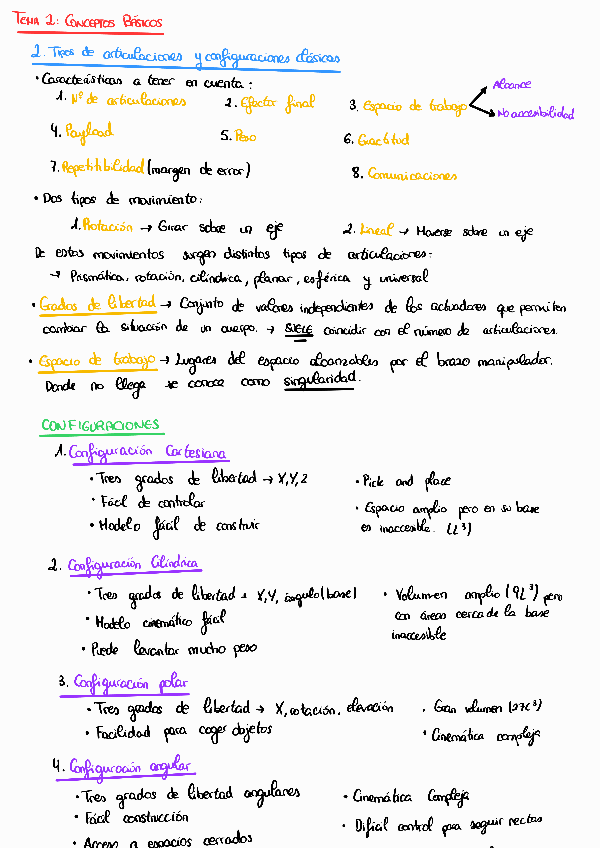 TEMA 2: CONCEPTOS BÁSICOS
1. Tipos de articulaciones y configuraciones clásicas
• Características a tener en cuenta:
1. Nº de articulaciones 2. Efector final 3. Espacio de trabajo → Alcance → No accesibilidad
4. Payload 5. Peso 6. Exactitud
7. Repetitibilidad (margen de error) 8. Comunicaciones
• Dos tipos de movimiento:
1. Rotación → Girar sobre un eje 2. Lineal → Moverse sobre un eje
De estos movimientos surgen distintos tipos de articulaciones:
→ Prismática, rotación, cilíndrica, planar, esférica y universal
• Grados de libertad → Conjunto de valores independientes de los actuadores que permiten
cambiar la situación de un cuerpo. → SUELE coincidir con el número de articulaciones.
• Espacio de trabajo → Lugares del espacio alcanzables por el brazo manipulador.
Donde no llega se conoce como singularidad.
CONFIGURACIONES
1. Configuración Cartesiana
• Tres grados de libertad → X, Y, Z • Pick and place
• Fácil de controlar • Espacio amplio pero en su base
• Modelo fácil de construir es inaccesible. (L³)
2. Configuración Cilíndrica
• Tres grados de libertad → X, Y, ángulo (base) • Volumen amplio (9L³) pero
• Modelo cinemático fácil con áreas cerca de la base
• Puede levantar mucho peso inaccesible
3. Configuración polar
• Tres grados de libertad → X, rotación, elevación • Gran volumen (27L³)
• Facilidad para coger objetos • Cinemática compleja
4. Configuración angular
• Tres grados de libertad angulares • Cinemática Compleja
• Fácil construcción • Dificil control para seguir rectas
• Acceso a espacios cerrados